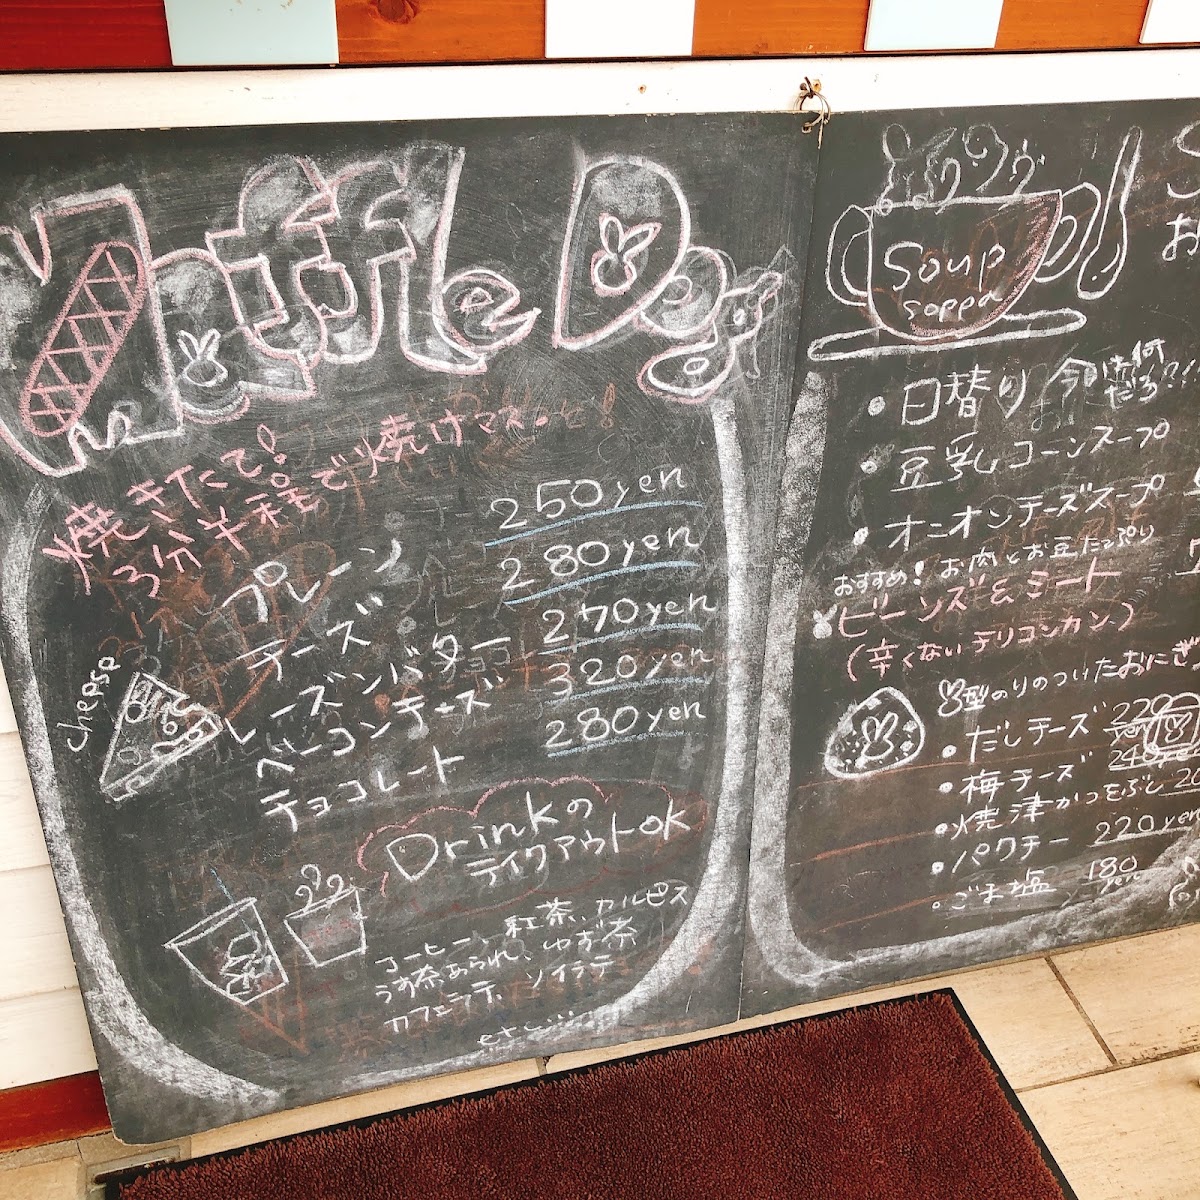 Waffle Dog
焼きたて!
3分半程で焼けマス。
プレーン 250yen
チーズ 280yen
レーズンバター 270yen
ベーコンチーズ 320yen
チョコレート 280yen
cheese
Drinkの
テイクアウトok
コーヒー、紅茶、カルピス
うす茶あられ、ゆず茶
カフェラテ、ソイラテ
etc...
Soup
soppa
日替り 今日は何だろ?!
豆乳コーンスープ
オニオンチーズスープ
おすすめ! お肉とお豆たっぷり
ビーンズ&ミート
(辛くないチリコンカン)
型のりのついたおにぎ
だしチーズ 220yen
梅チーズ 240yen
焼津かつをぶし 20
パクチー 220yen
ごま塩 180yen